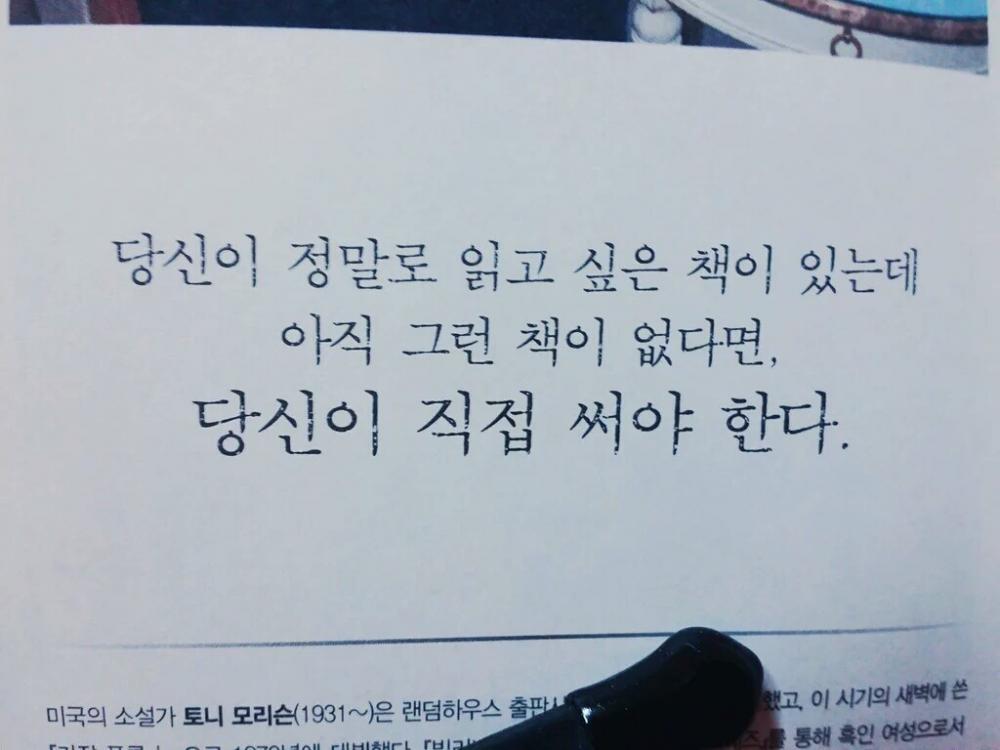 당신이 정말로 읽고 싶은 책이 있는데
아직 그런 책이 없다면,
당신이 직접 써야 한다.
미국의 소설가 토니 모리슨(1931~)은 랜덤하우스 했고, 이 시기의 새벽에 쓴
통해 흑인 여성으로서